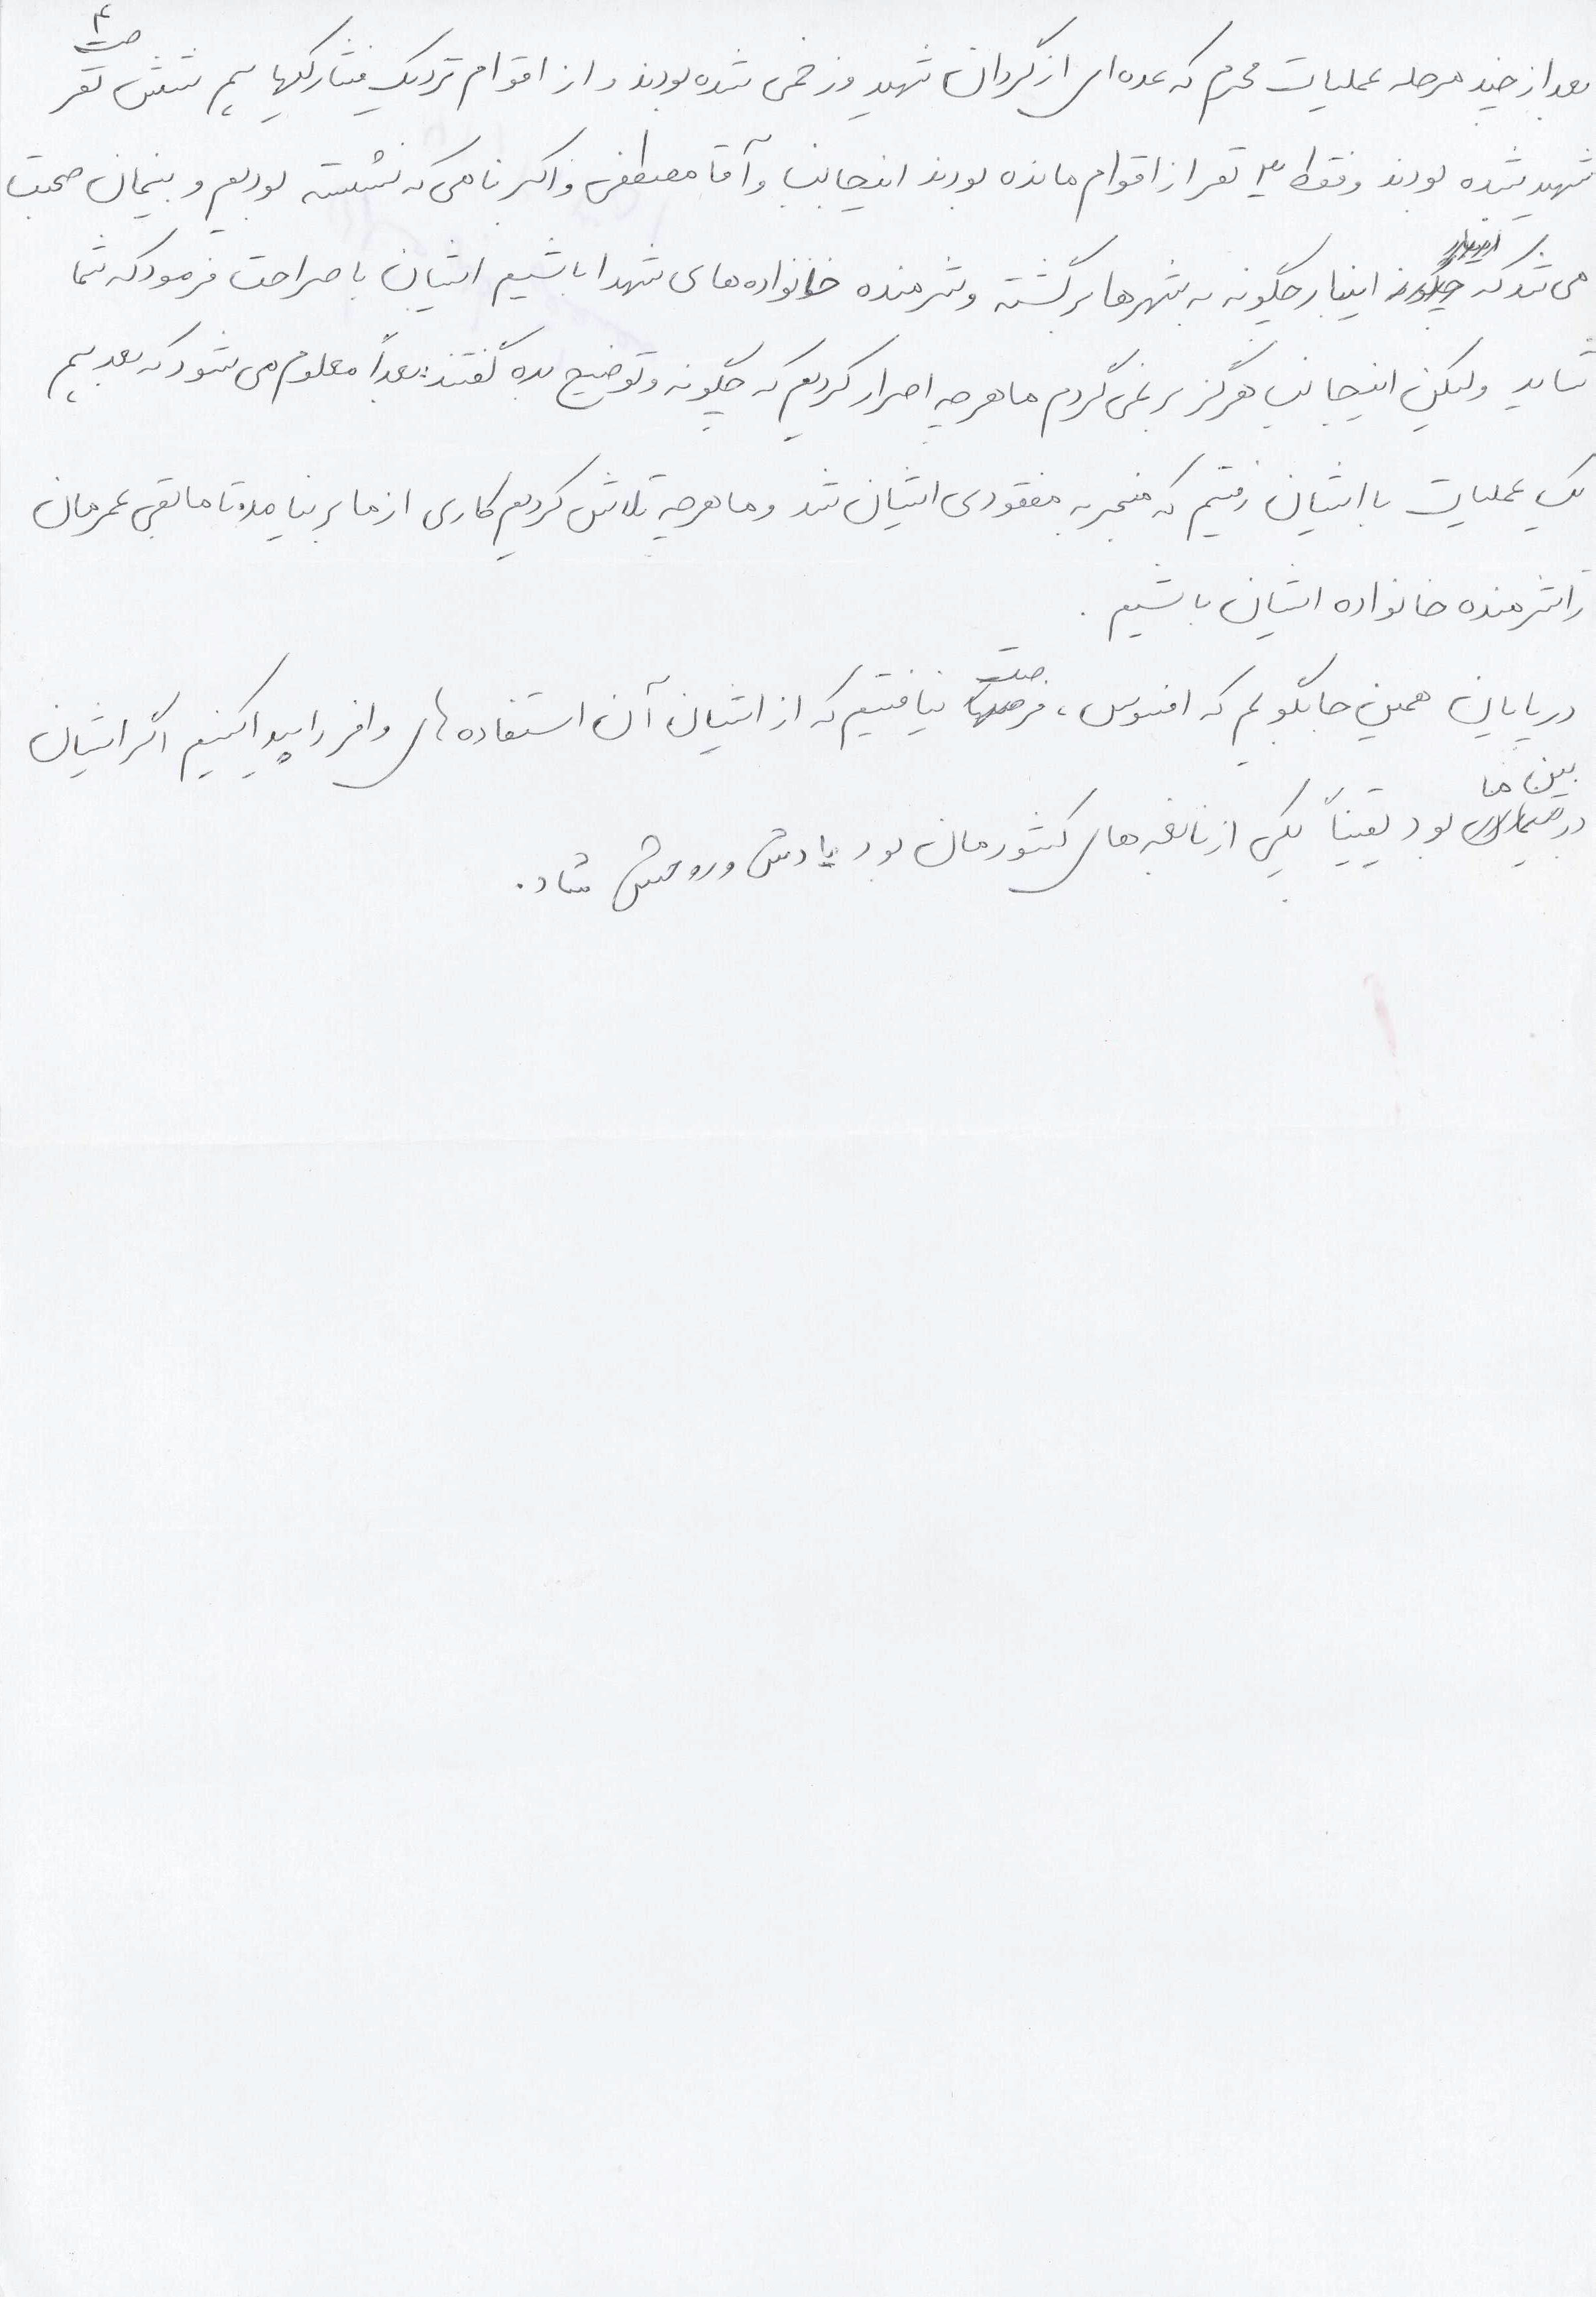 ۴
ص
بعد از چند مرحله عملیات محرم که عده ای از گردان شهید و زخمی شده بودند و از اقوام نزدیک فشارکیها هم شش نفر
شهید شده بودند و فقط ۳ نفر از اقوام مانده بودند اینجانب و آقا مصطفی و اکبر نامی که نشسته بودیم و بینمان صحبت
می شد که اینبار چگونه به شهرها برگشته و شرمنده خانواده های شهدا باشیم ایشان با صراحت فرمود که شما
شاید ولیکن اینجانب هرگز بر نمی گردم ما هر چه اصرار کردیم که چگونه و توضیح بده گفتند: بعداً معلوم می شود که بعد هم
یک عملیات با ایشان رفتیم که منجر به مفقودی ایشان شد و ما هر چه تلاش کردیم کاری از ما بر نیامده تا مابقی عمرمان
را شرمنده خانواده ایشان باشیم .
در پایان همین جا بگویم که افسوس، فرصت نیافتیم که از ایشان آن استفاده های وافر را پیدا کنیم اگر ایشان
در بین ما بود یقیناً یکی از نابغه های کشورمان بود یادش و روحش شاد.